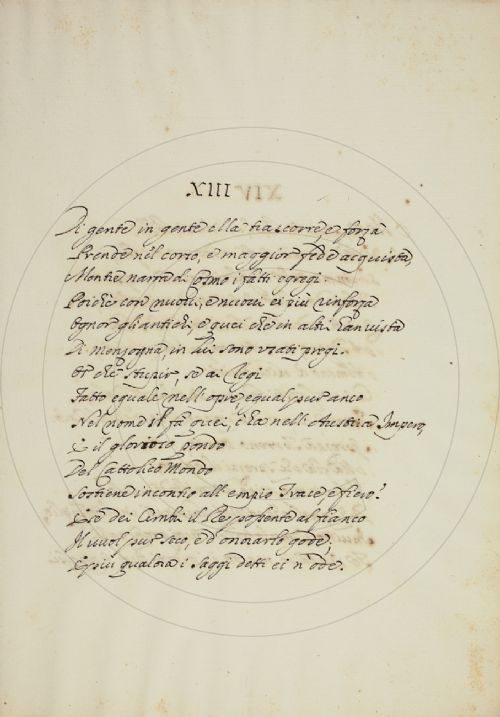 XIII
Di gente in gente ella trascorre, e forza
Prende nel corso, e maggior fede acquista,
Mentre narra di Cosmo i fatti egregi
Poichè con nuovi, e nuovi ei più rinforza
Ognor gli antichi, e quei che in altri han vista
Di menzogna, in lui sono veraci pregi.
Et che stupir, se ai Regi
Fatto eguale nell'opre, egual pur anco
Nel nome il fa quei, c'ha nell'Austria Impero,
E il glorioso pondo
Del Cattolico Mondo
Sostiene incontro all'empio Trace, e fiero?
E se dei Cimbri il Re possente al fianco
Il vuol pur seco, e d'onorarlo gode,
E più qualora i saggi detti ei n'ode.